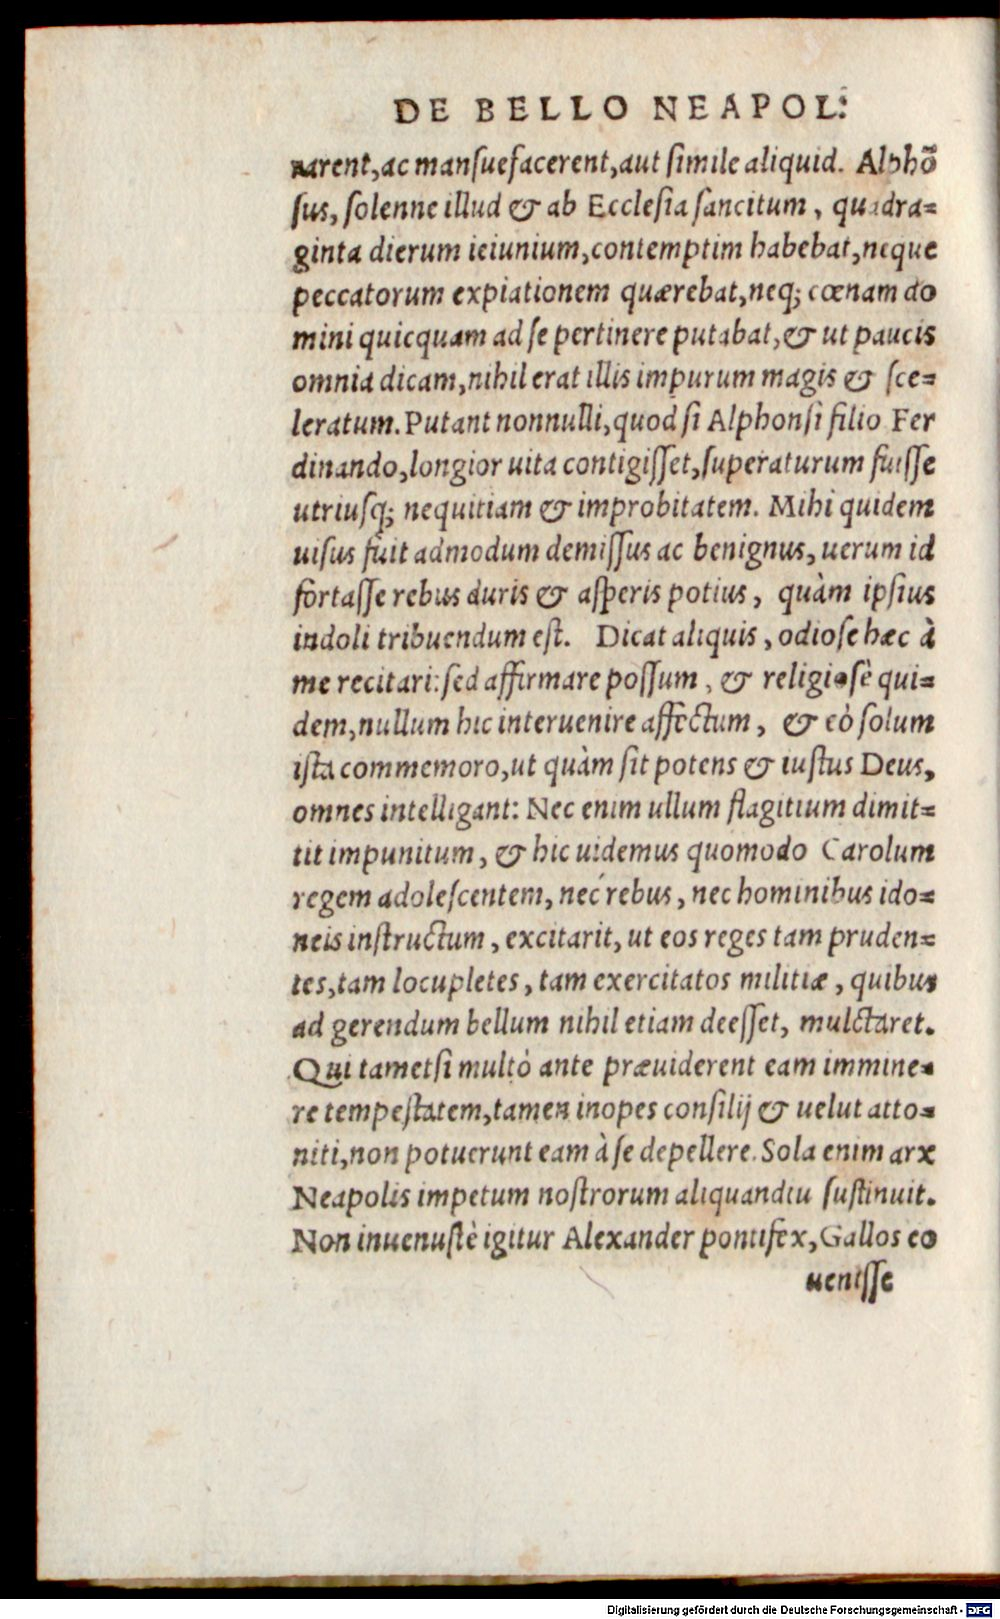 DE BELLO NEAPOL:
narent, ac mansuefacerent, aut simile aliquid. Alphõ
sus, solenne illud & ab Ecclesia sancitum, quadra=
ginta dierum ieiunium, contemptim habebat, neque
peccatorum expiationem quærebat, neq; cœnam do
mini quicquam ad se pertinere putabat, & ut paucis
omnia dicam, nihil erat illis impurum magis & sce=
leratum. Putant nonnulli, quod si Alphonsi filio Fer
dinando, longior uita contigisset, superaturum fuisse
utriusq; nequitiam & improbitatem. Mihi quidem
uisus fuit admodum demissus ac benignus, uerum id
fortasse rebus duris & asperis potius, quàm ipsius
indoli tribuendum est. Dicat aliquis, odiose hæc à
me recitari: sed affirmare possum, & religiosè qui=
dem, nullum hic interuenire affectum, & eò solum
ista commemoro, ut quàm sit potens & iustus Deus,
omnes intelligant: Nec enim ullum flagitium dimit=
tit impunitum, & hic uidemus quomodo Carolum
regem adolescentem, nec rebus, nec hominibus ido=
neis instructum, excitarit, ut eos reges tam pruden=
tes, tam locupletes, tam exercitatos militiæ, quibus
ad gerendum bellum nihil etiam deesset, mulctaret.
Qui tametsi multò ante præuiderent eam immine=
re tempestatem, tamen inopes consilij & uelut atto=
niti, non potuerunt eam à se depellere. Sola enim arx
Neapolis impetum nostrorum aliquandiu sustinuit.
Non inuenustè igitur Alexander pontifex, Gallos eo
uenisse
Digitalisierung gefördert durch die Deutsche Forschungsgemeinschaft - DFG